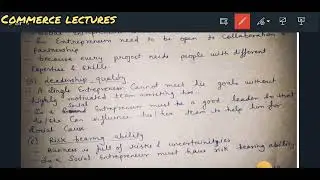 COMMERCE LECTURES
Social Entrepreneur
An Entrepreneur need to be open to collaboration &
partnership
because every project needs people with different
Expertise & Skills
Leadership quality
A single Entrepreneur cannot meet his goals without
highly motivated team assisting him.
So a Social Entrepreneur must be a good leader so that
he/she can influence his/her team to help him for
Social Cause
Risk bearing ability
Business is full of risks & uncertainities
So a Social Entrepreneur must have risk bearing ability